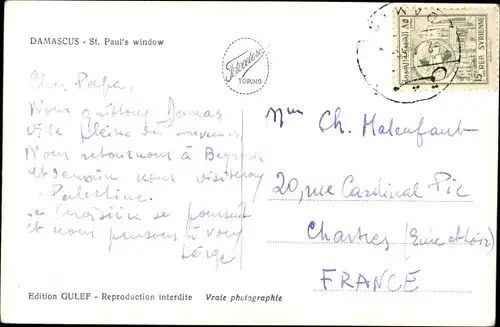 DAMASCUS - St. Paul's window
Fotocolor
TORINO
REP. SYRIENNE
Cher Papa,
Nous quittons Damas
ville pleine de souvenirs
Nous retournons à Beyrouth
et demain nous visiterons
Palestine.
La croisière se poursuit
et nous pensons à vous
Serge
Mm Ch. Malenfant
20, rue Cardinal Pie
Chartres (Eure et Loir)
FRANCE
Edition GULEF - Reproduction interdite Vraie photographie